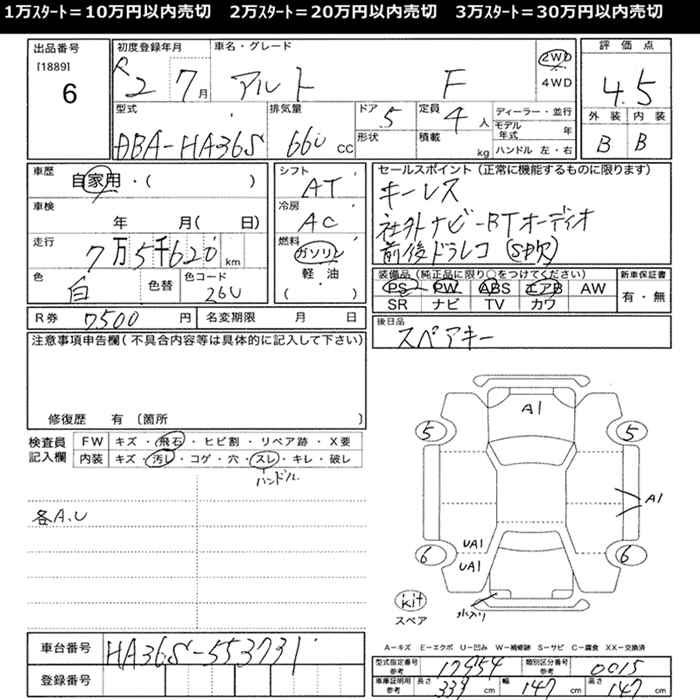 1万ｽﾀｰﾄ＝10万円以内売切 2万ｽﾀｰﾄ＝20万円以内売切 3万ｽﾀｰﾄ＝30万円以内売切
出品番号
[1889]
6
初度登録年月
R2 7月
車名・グレード
アルト F
2WD
4WD
評価点
4.5
外装 内装
B B
型式
DBA-HA36S
排気量
660 CC
ドア
5
形状
定員
4人
積載
kg
ディーラー・並行
モデル年式 年
ハンドル 左・右
車歴
自家用・( )
車検
年 月( 日)
走行
7万5千620 km
色
白
色替
色コード
26U
シフト
AT
冷房
AC
燃料
ガソリン
軽・油
( )
セールスポイント(正常に機能するものに限ります)
キーレス
社外ナビ-BTオーディオ
前後ドラレコ
装備品(純正品に限り○をつけてください)
PS2 PW ABS エアB AW
SR ナビ TV カワ
新車保証書
有・無
R券 7500 円
名変期限 月 日
後日品
スペアキー
注意事項申告欄(不具合内容等は具体的に記入して下さい)
修復歴 有 〔箇所 〕
検査員記入欄
FW キズ・飛石・ヒビ割・リペア跡・X要
内装 キズ・汚レ・コゲ・穴・スレ・キレ・破レ
ハンドル
各A.U
A1
5 5
A1
UA1
UA1
6 6
kit
スペア
車台番号 HA36S-553731
登録番号
A－キズ E－エクボ U－凹み W－補修跡 S－サビ C－腐食 XX－交換済
型式指定番号 参考 17454 類別区分番号 参考 0015
車庫証明用 参考 長さ 339 cm 幅 147 cm 高さ 147 cm